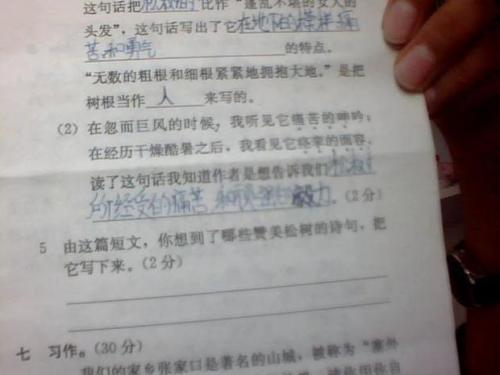 这句话把松树的比作“蓬乱不堪的女人的
头发”，这句话写出了它在地下的 痛
苦和勇气的特点。
“无数的粗根和细根紧紧地拥抱大地。”是把
树根当作 人 来写的。
(2) 在忽而巨风的时候，我听见它痛苦的呻吟；
在经历干燥酷暑之后，我看见它痉挛的面容。
读了这句话我知道作者是想告诉我们松树
所经受的痛苦 和 毅力。(2分)
5 由这篇短文，你想到了哪些赞美松树的诗句，把
它写下来。(2分)
七 习作。(30分)
我们的家乡张家口是著名的山城，被称为“塞外